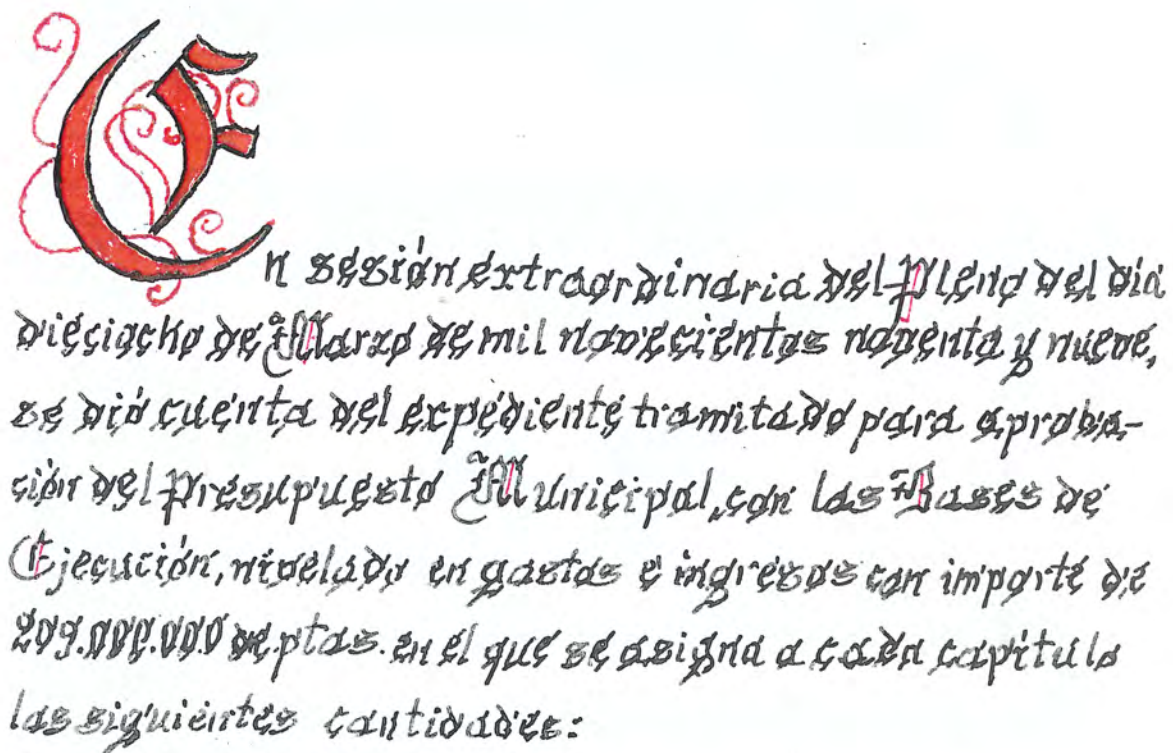 En sesión extraordinaria del Pleno del día
dieciocho de Marzo de mil novecientos noventa y nueve,
se dió cuenta del expediente tramitado para aproba-
ción del Presupuesto Municipal, con las Bases de
Ejecución, nivelado en gastos e ingresos con importe de
209.000.000 de ptas. en el que se asigna a cada capítulo
las siguientes cantidades: